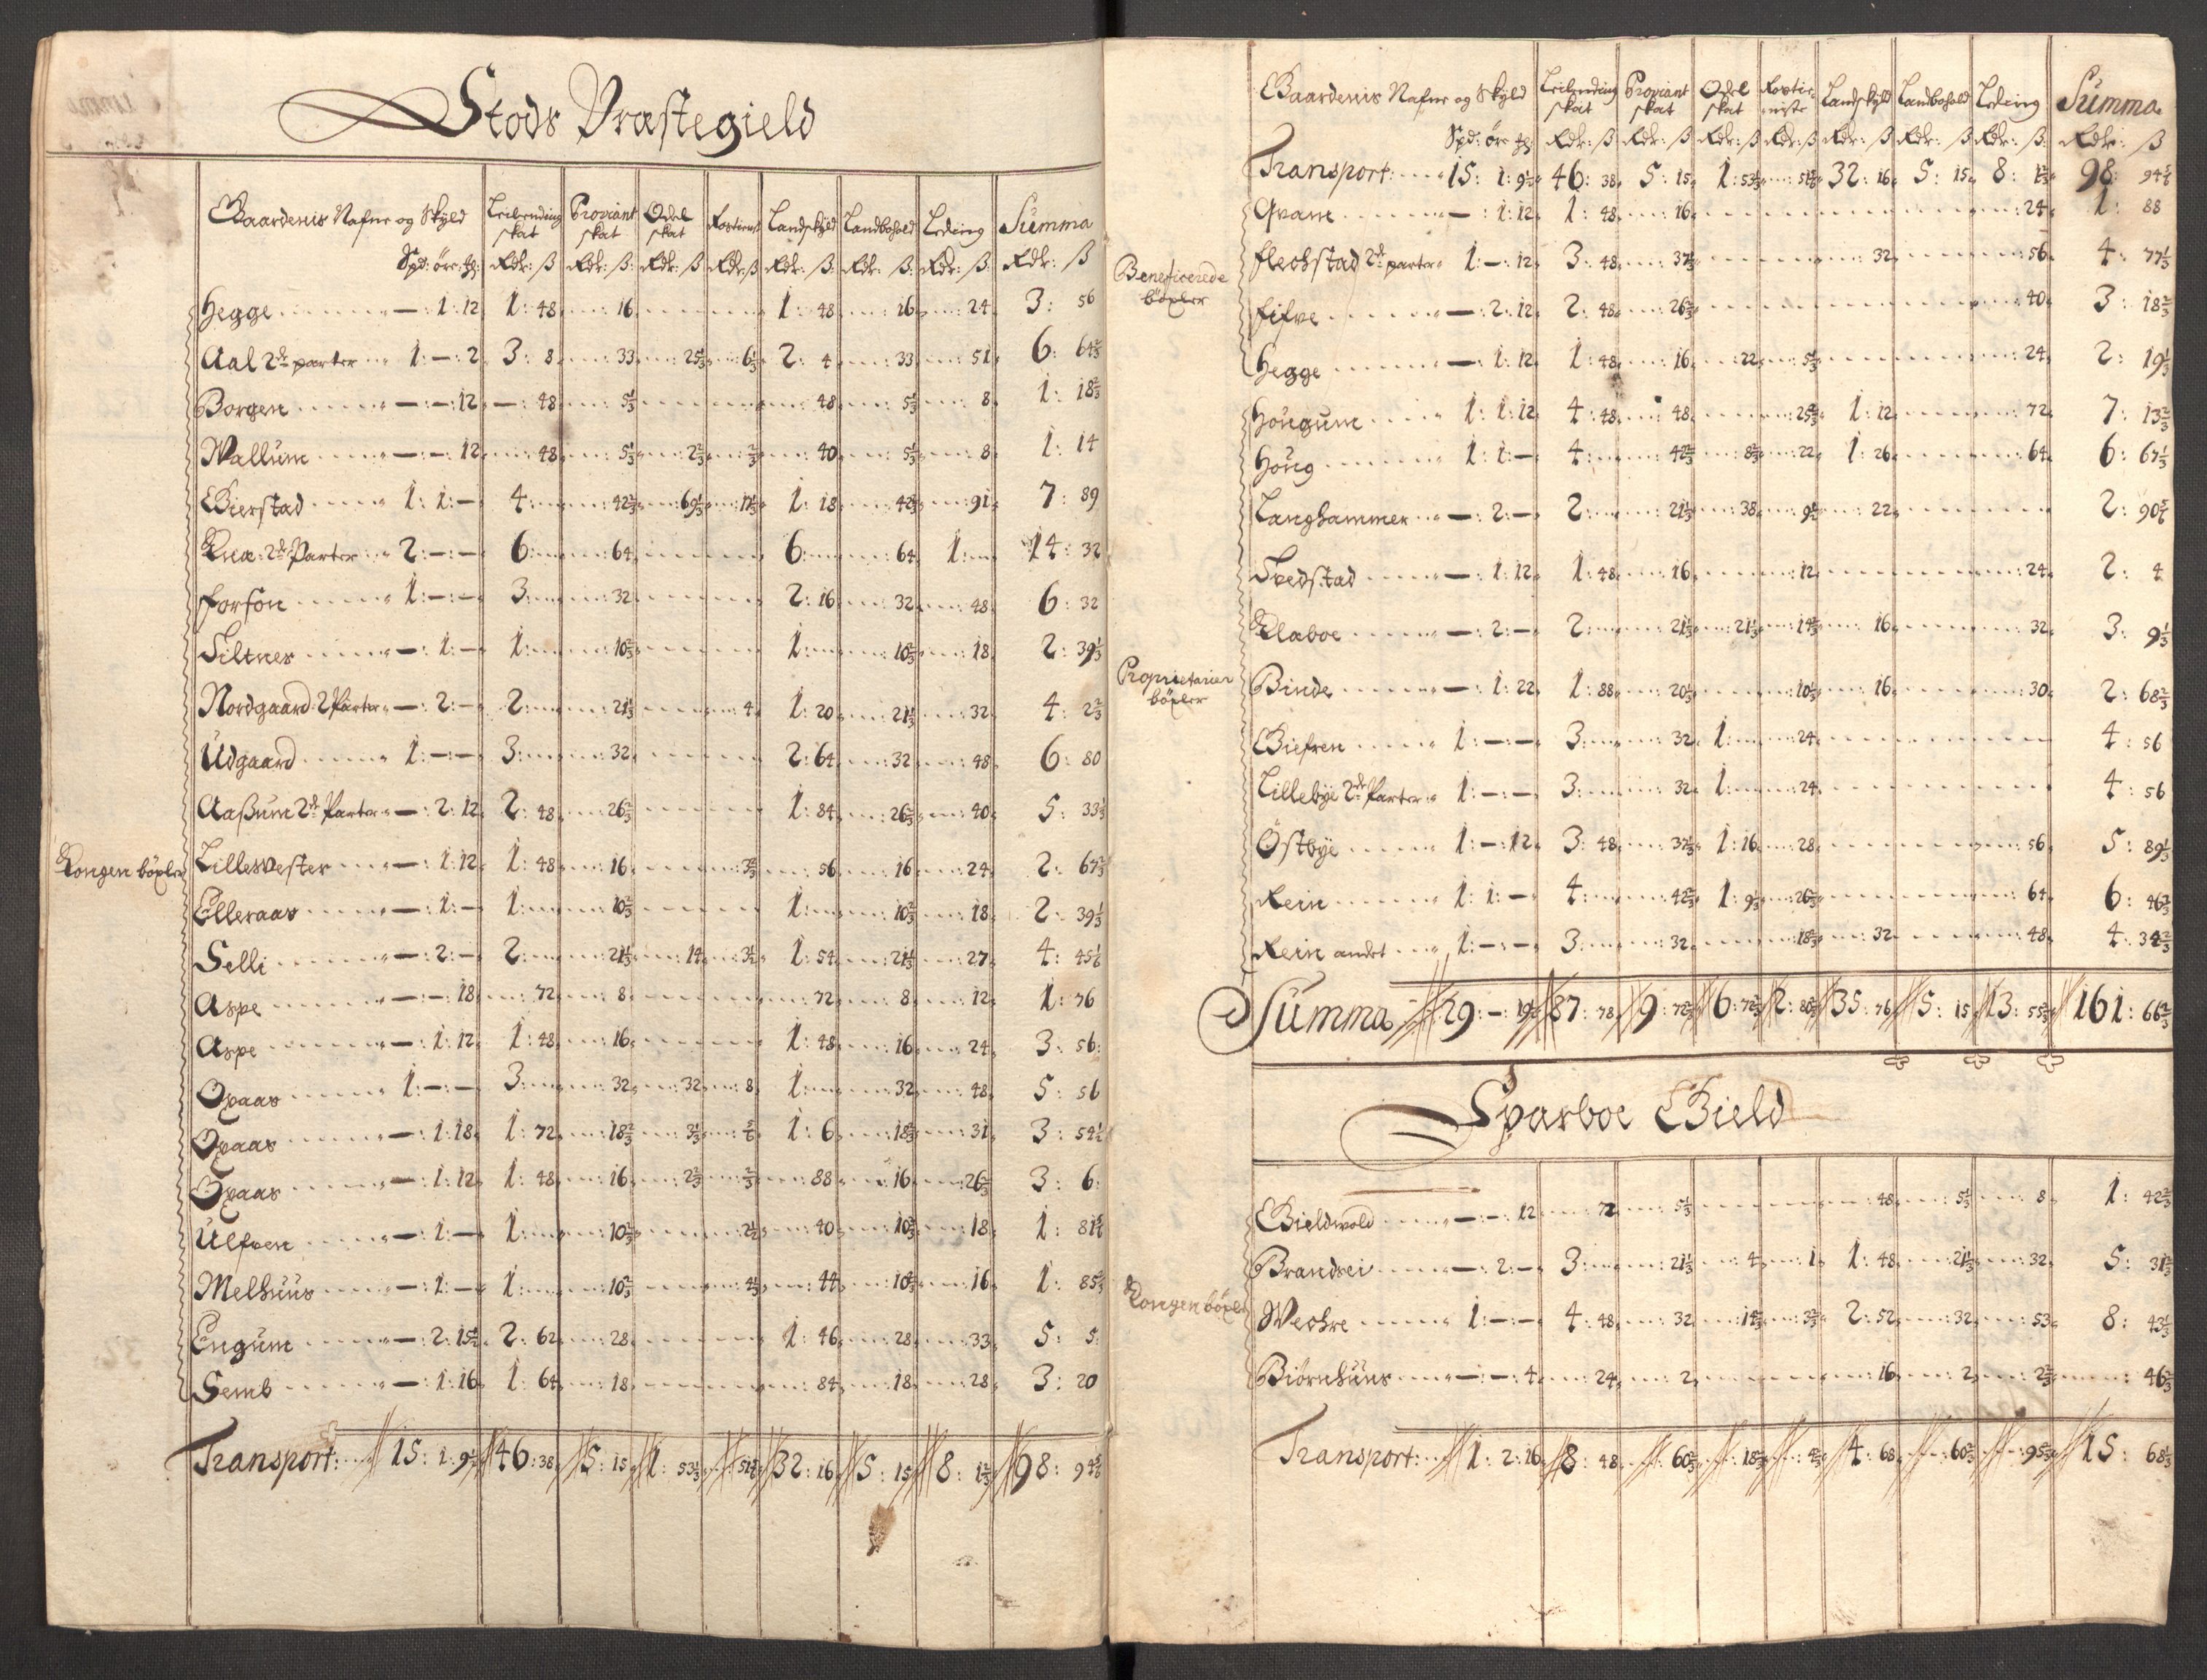 Stods Præstegield
Gaardenis Nafne og Skyld Leilending skat Proviant skat Odel skat Rostieneste Landskyld Landbohold Leding Summa
Spd: öre: Rdr: ß Rdr: ß Rdr: ß Rdr: ß Rdr: ß Rdr: ß Rdr: ß Rdr: ß
Hegge — : 1 : 12 1 : 48 16 1 : 48 16 24 3 : 56
Aal 2de parter 1 : — : 2 3 : 8 33 25⅓ 6⅓ 2 : 4 33 51 6 : 64⅔
Borgen — : — : 12 — : 48 5⅓ 48 5⅓ 8 1 : 18⅔
Wallum — : — : 12 48 5⅓ 2⅔ ⅔ 40 5⅓ 8 1 : 14
Gierstad 1 : 1 : — 4 42⅔ 69⅓ 17⅓ 1 : 18 42⅔ 91 7 : 89
2de Parter 2 : — : — 6 64 6 64 1 14 : 32
Forson 1 : — : — 3 32 2 : 16 32 48 6 : 32
Siltnes — : 1 : — 1 10⅔ 1 10⅔ 18 2 : 39⅓
Nordgaard 2 Parter — : 2 : — 2 21⅓ 4 1 : 20 21⅓ 32 4 : 2⅔
Udgaard 1 : — : — 3 32 2 : 64 32 48 6 : 80
Aaßum 2de Parter — : 2 : 12 2 : 48 26⅔ 1 : 84 26⅔ 40 5 : 33⅓
Kongen böxler
Lillewester — : 1 : 12 1 : 48 16 3⅔ 56 16 24 2 : 67⅔
Elleraas — : 1 : — 1 10⅔ 1 10⅔ 18 2 : 39⅓
Selli — : 2 : — 2 21⅓ 14 3½ 1 : 54 21⅓ 27 4 : 45⅙
Aspe — : — : 18 72 8 72 8 12 1 : 76
Aspe — : 1 : 12 1 : 48 16 1 : 48 16 24 3 : 56
Opaas 1 : — : — 3 32 32 8 1 32 48 5 : 56
Opaas — : 1 : 18 1 : 72 18⅔ 3⅓ ⅚ 1 : 6 18⅔ 31 3 : 54½
Opaas — : 1 : 12 1 : 48 16 2⅔ ⅔ 88 16 26⅔ 3 : 6
Ulfven — : 1 : — 1 10⅔ 2½ 40 10⅔ 18 1 : 81⅚
Melhuus — : 1 : — 1 10⅔ 4⅓ 44 10⅔ 16 1 : 85⅔
Engum — : 2 : 15 2 : 62 28 1 : 46 28 33 5 : 5
Semb — : 1 : 16 1 : 64 18 84 18 28 3 : 20
Transport: 15 : 1 : 9½ 46 : 38 5 : 15 1 : 53⅓ 51⅚ 32 : 16 5 : 15 8 : 1⅔ 98 : 94⅚
Gaardenis Nafne og Skyld Leilending skat Proviant skat Odel skat Rostieneste Landskyld Landbohold Leding Summa
Spd: öre: Rdr: ß Rdr: ß Rdr: ß Rdr: ß Rdr: ß Rdr: ß Rdr: ß Rdr: ß
Transport: 15 : 1 : 9½ 46 : 38 5 : 15 1 : 53⅓ 51⅚ 32 : 16 5 : 15 8 : 1⅔ 98 : 94⅚
Qvam — : 1 : 12 1 : 48 16 24 1 : 88
Beneficerede böxler
Flechstad 2de parter 1 : — : 12 3 : 48 37⅓ 32 56 4 : 77⅓
Fifve — : 2 : 12 2 : 48 26⅔ 40 3 : 18⅔
Hegge — : 1 : 12 1 : 48 16 22 5⅓ 24 2 : 19⅓
Hougum 1 : 1 : 12 4 : 48 48 25⅔ 1 : 12 72 7 : 13⅔
Houg 1 : 1 : — 4 42⅔ 8⅔ 22 1 : 26 64 6 : 67⅓
Langhammer — : 2 : — 2 21⅓ 38 9½ 22 2 : 90⅚
Svedstad — : 1 : 12 1 : 48 16 12 24 2 : 4
Klaboe — : 2 : — 2 21⅓ 21⅓ 14⅔ 16 32 3 : 9⅓
Proprietarier böxler
Binde — : 1 : 22 1 : 88 20⅓ 10⅓ 16 30 2 : 68⅔
Giefren 1 : — : — 3 32 1 24 4 : 56
Lillebye 2de Parter 1 : — : — 3 32 1 24 4 : 56
Östbye 1 : — : 12 3 : 48 37⅓ 1 : 16 28 56 5 : 89⅓
Rein 1 : 1 : — 4 42⅔ 1 : 9⅓ 26⅔ 64 6 : 46⅔
Rein andet 1 : — : — 3 32 18⅔ 32 48 4 : 34⅔
Summa 29 : — : 19½ 87 : 78 9 : 72⅔ 6 : 72⅔ 2 : 80⅔ 35 : 76 5 : 15 13 : 55⅔ 161 : 66⅔
Sparboe Gield
Gieldwold — : — : 12 72 5⅓ 48 5⅓ 8 1 : 42⅔
Brandsei — : 2 : — 3 21⅓ 4 1 1 : 48 21⅓ 32 5 : 31⅔
Kongen böxler
Wechre 1 : — : — 4 : 48 32 14⅔ 3⅔ 2 : 52 32 53 8 : 43⅓
Biörnhuus — : — : 4 24 2 16 2 2⅔ 46⅔
Transport: 1 : 2 : 16 8 : 48 60⅔ 18⅔ 4⅔ 4 : 68 60⅔ 95⅔ 15 : 68⅓